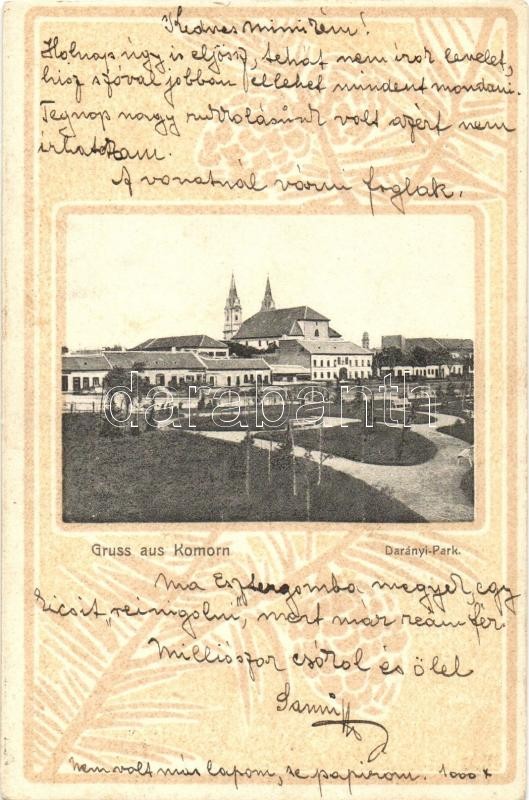 Kedves mimikém!
Holnap úgy is eljösz, tehát nem írok levelet,
hisz szóval jobban ellehet mindent mondani.
Tegnap nagy rukkolásunk volt azért nem
írhattam.
A vonatnál várni foglak.
darabanth
Gruss aus Komorn
Darányi-Park.
Ma Esztergomba megyek egy
kicsit "reinigolni", mert már reám fér.
Milliószor csókol és ölel
Sanni
Nem volt más lapom, se papirom. 1000 x